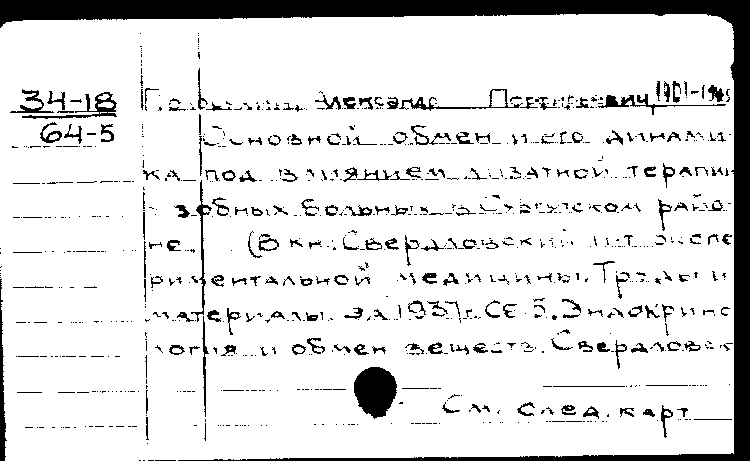 34-18 Александр Порфирьевич, 1901-1945
64-5 Основной обмен и его динами-
ка под влиянием лизатной терапии
зобных больных в Сургутском райо-
не. (В кн.: Свердловский инт экспе
риментальной медицины. Труды и
материалы за 1937 г. Сб 5. Эндокрино
логия и обмен веществ. Свердловск
См. след. карт